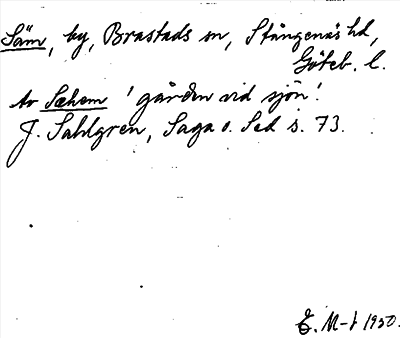 Säm, by, Brastads sn, Stångenäs hd,
Göteb. l.
av Sæhem 'gården vid sjön'.
J. Sahlgren, Saga o. Sed s. 73.
E. M-t 1950.